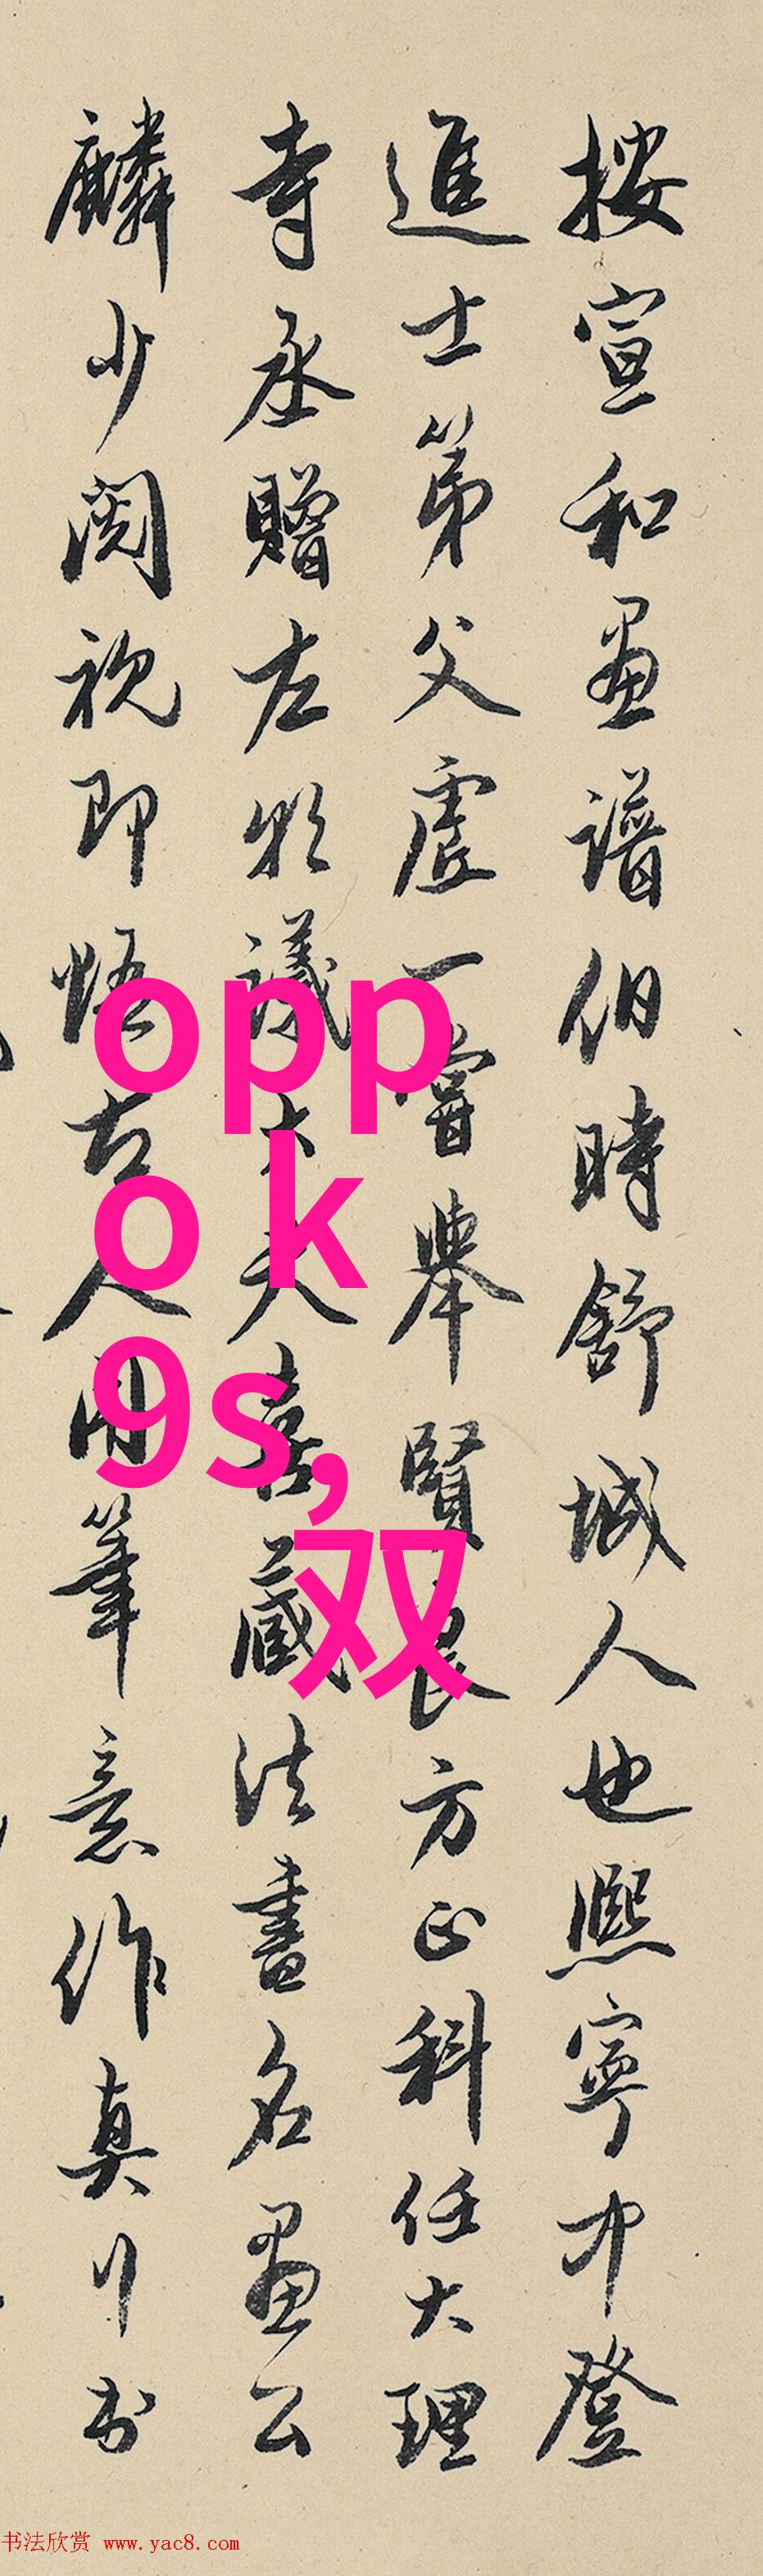 按宣和畫譜伯時舒城人也熙寧中登
進士第父虛一嘗舉賢良方正科任大理
寺丞贈左朝議大夫喜藏法書名畫公
麟少閱視即悟古人用筆意作真行書
opp
o k
9s,
双
书法欣赏 www.yac8.com